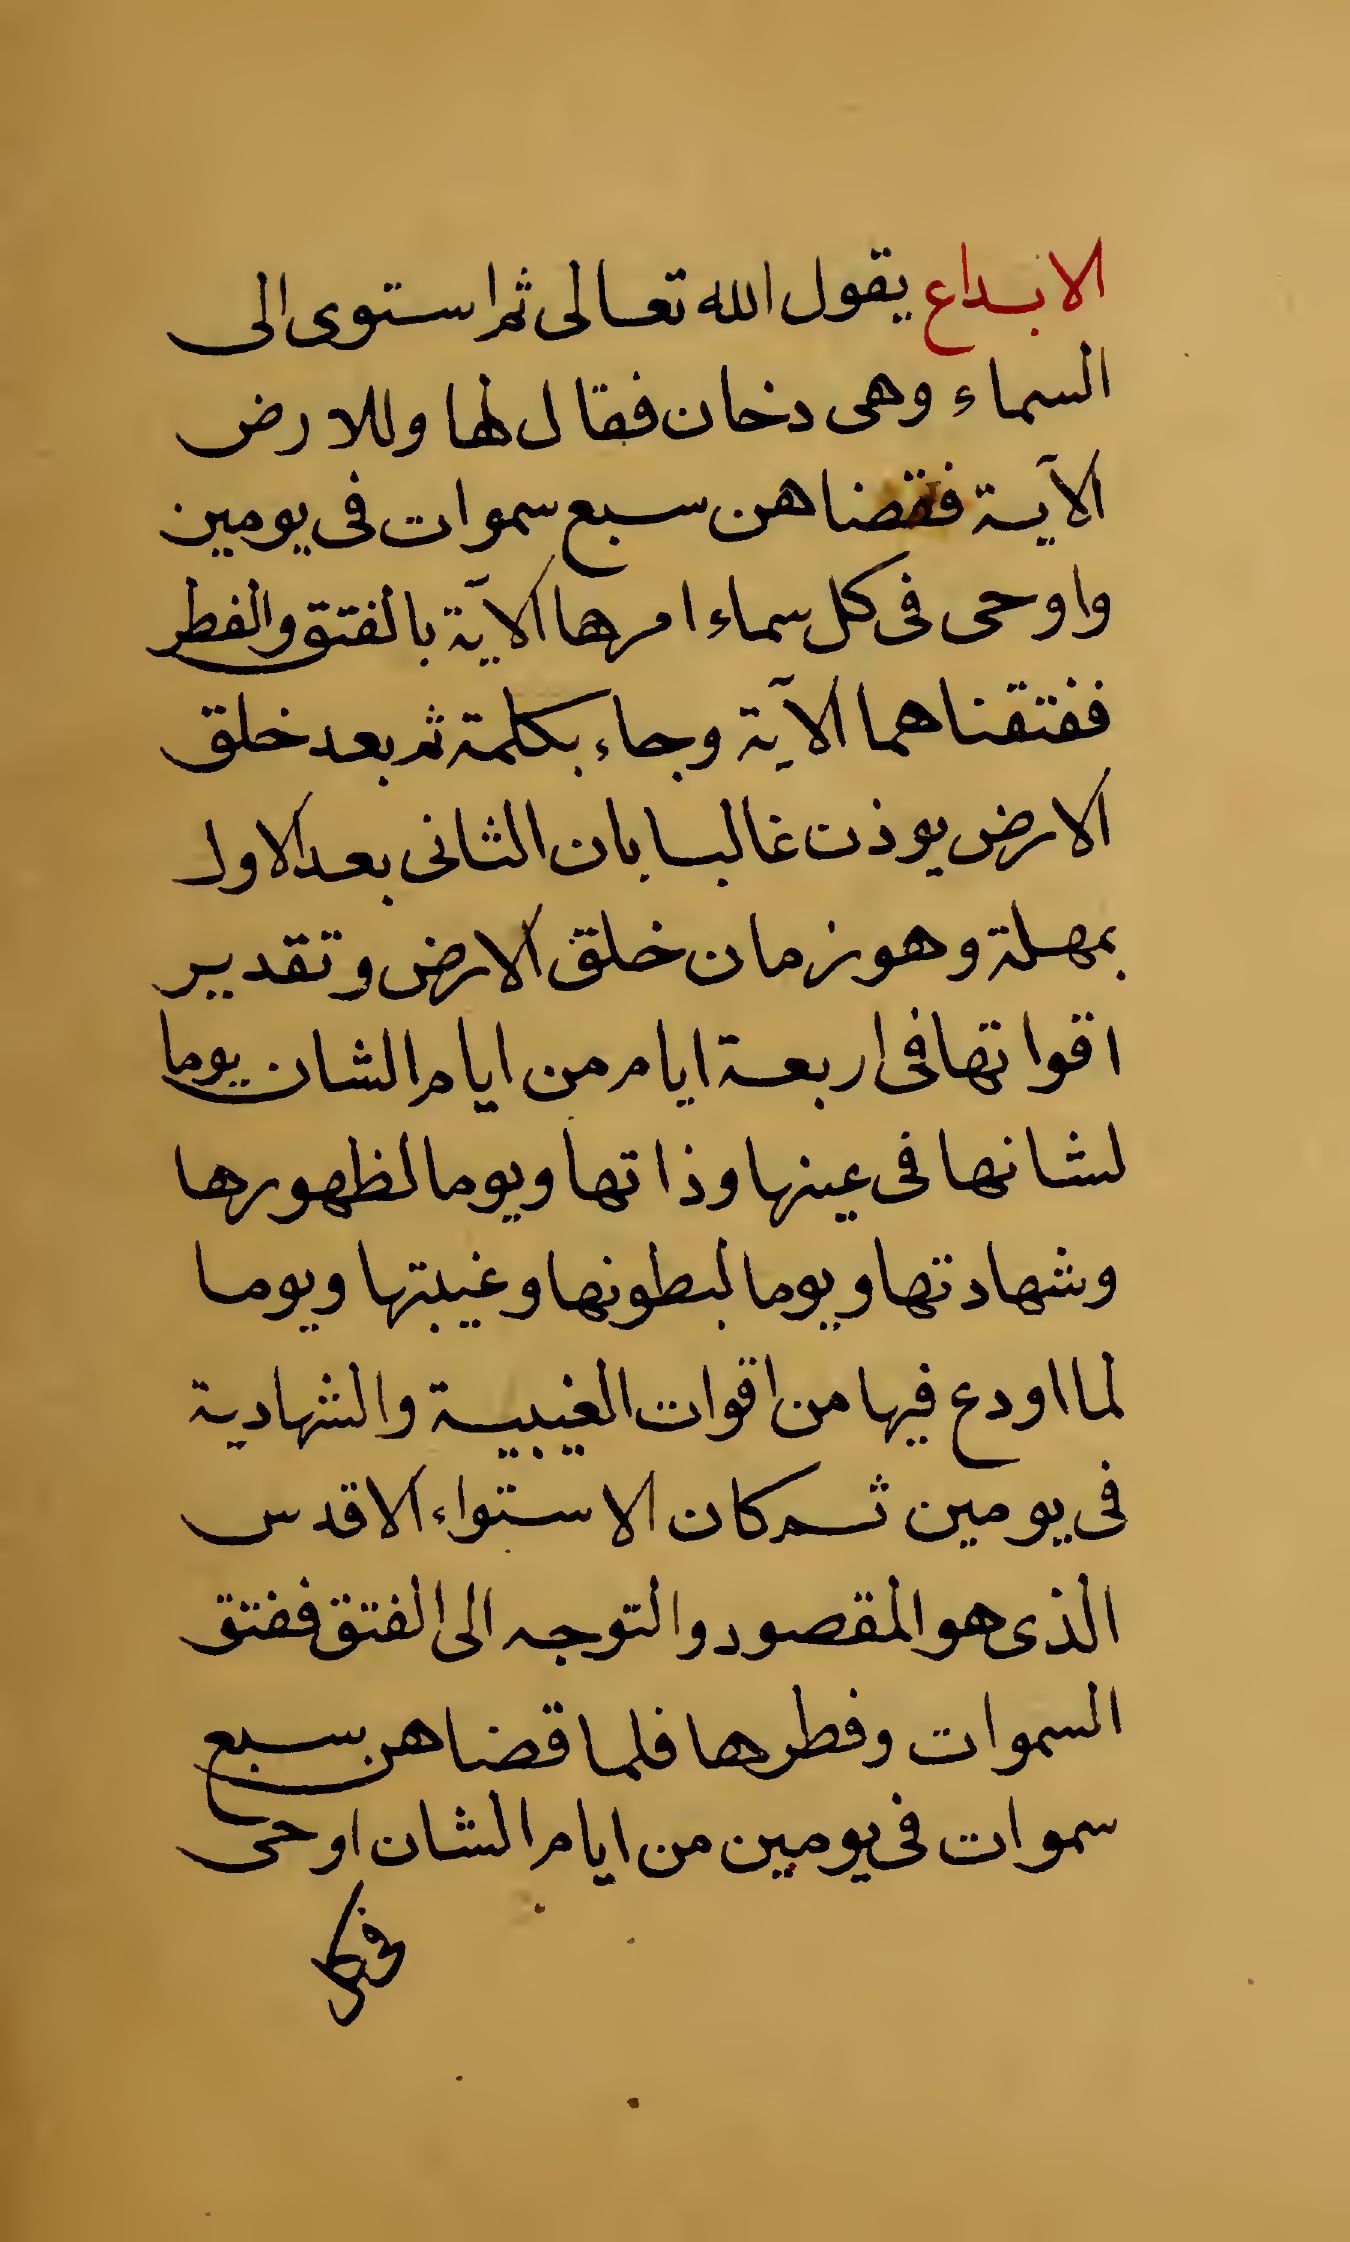 الابداع يقول الله تعالى ثم استوى الى
السماء وهى دخان فقال لها وللارض
الآية فقضاهن سبع سموات فى يومين
واوحى فى كل سماء امرها الآية بالفتق والفطر
ففتقناهما الآية وجاء بكلمة ثم بعد خلق
الارض يوذن غالبا بان الثانى بعد الاول
بمهلة وهو زمان خلق الارض وتقدير
اقواتها فى اربعة ايام من ايام الشان يوما
لشانها فى عينها وذاتها ويوما لظهورها
وشهادتها ويوما لبطونها وغيبتها ويوما
لما اودع فيها من اقوات الغيبية والشهادية
فى يومين ثم كان الاستواء الاقدس
الذى هو المقصود والتوجه الى الفتق ففتق
السموات وفطرها فلما قضاهن سبع
سموات فى يومين من ايام الشان اوحى
فى كل